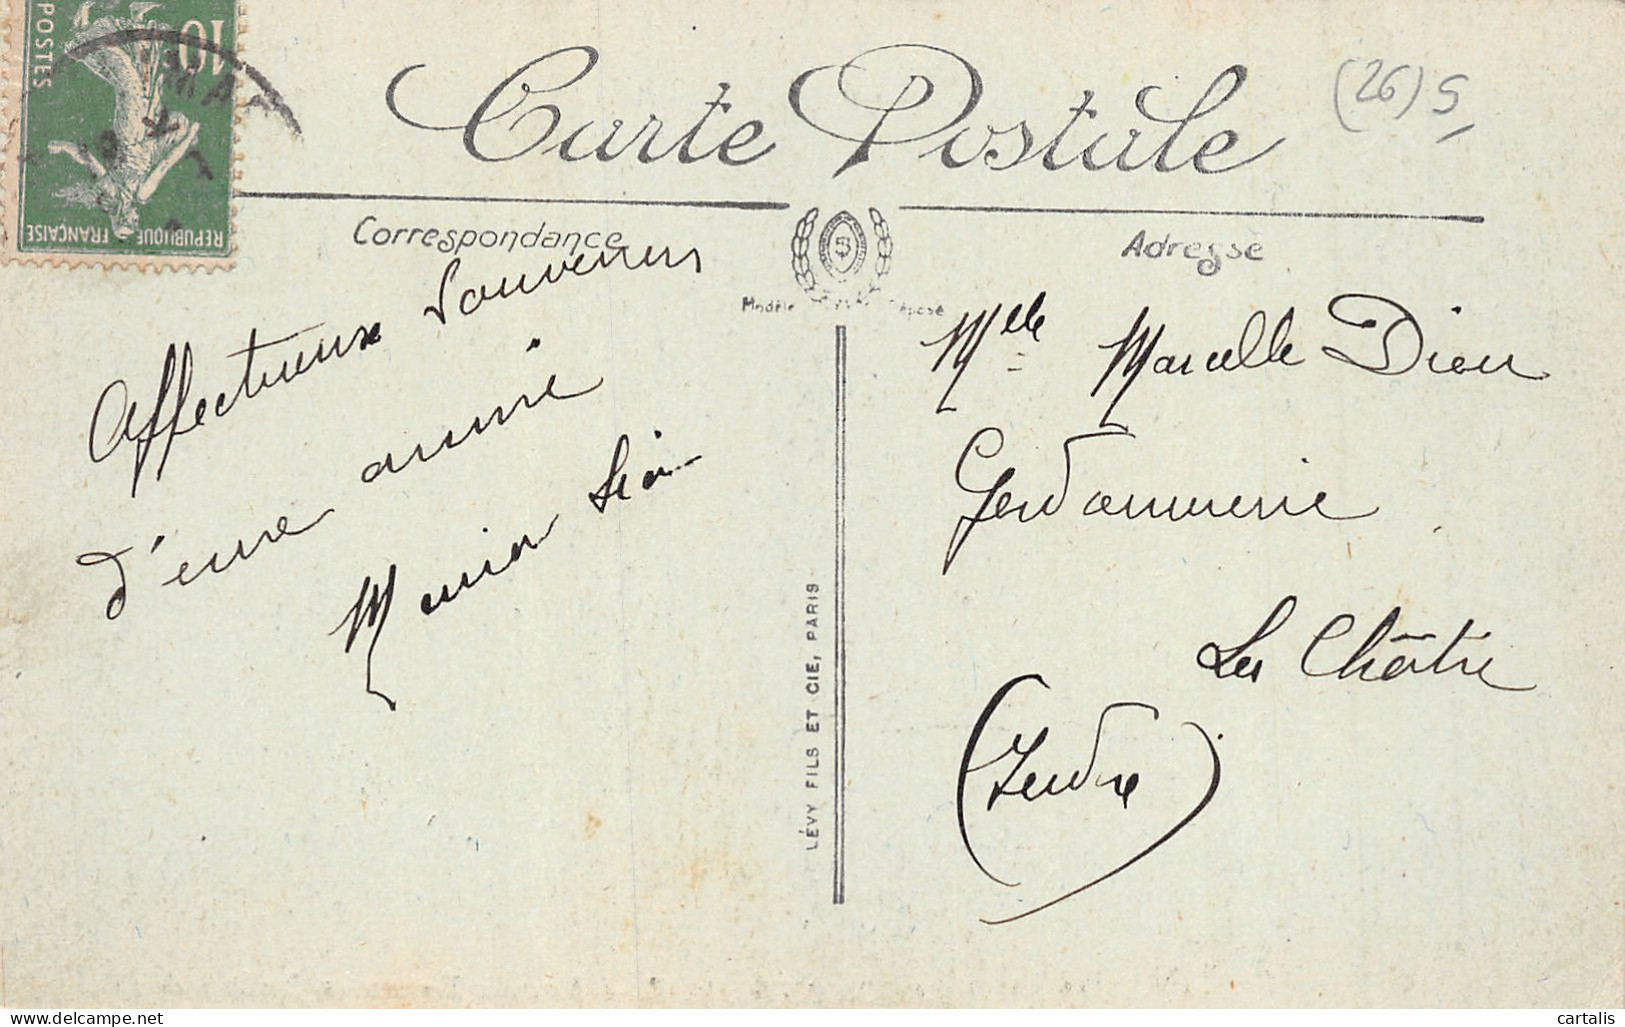 10
POSTES
REPUBLIQUE FRANÇAISE
Carte Postale
(26) S
Correspondance
Adresse
Modèle déposé
Affectueux Souvenirs
d'une amie
Mlle Marcelle Dion
Gendarmerie
La Châtre
(Indre)
LÉVY FILS ET CIE, PARIS
delcampe.net
cartalis